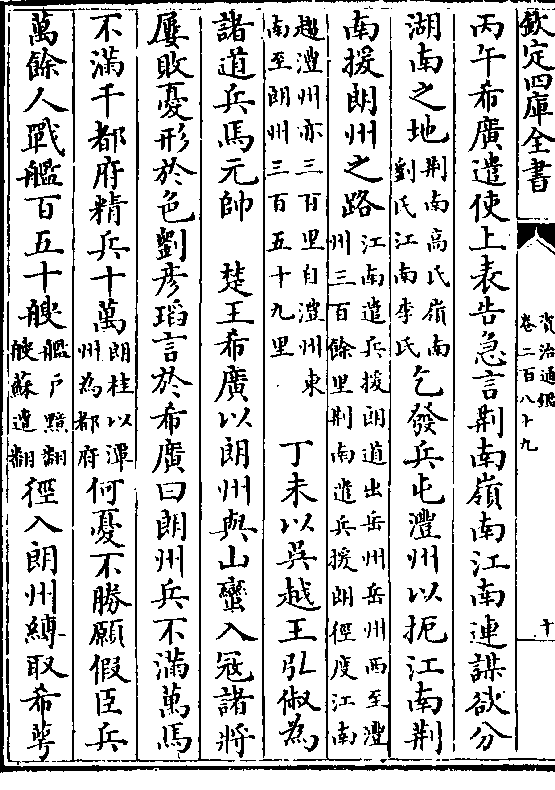 欽定四庫全書
資治通鑑
卷二百八十九
十
丙午希廣遣使上表告急言荆南嶺南江南連謀欲分
湖南之地荆南高氏嶺南劉氏江南李氏乞發兵屯澧州以扼江南荆
南援朗州之路江南遣兵援朗道出岳州岳州西至澧州三百餘里荆南遣兵援朗徑度江南
趨澧州亦三百里自澧州東南至朗州三百五十九里丁未以吳越王弘俶為
諸道兵馬元帥 楚王希廣以朗州與山蠻入冦諸將
屢敗憂形於色劉彥瑫言於希廣曰朗州兵不滿萬馬
不滿千都府精兵十萬朗桂以潭州為都府何憂不勝願假臣兵
萬餘人戰艦百五十艘艦戶黯翻艘蘇遭翻徑入朗州縛取希萼